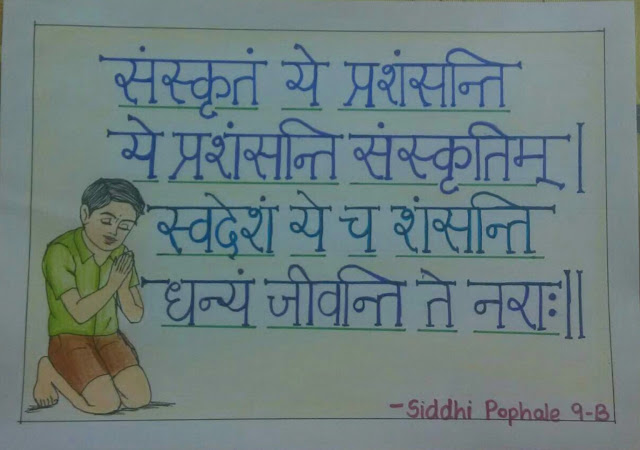 संस्कृतं ये प्रशंसन्ति
ये प्रशंसन्ति संस्कृतिम्।
स्वदेशं ये च शंसन्ति
धन्यं जीवन्ति ते नराः॥
-Siddhi Pophale 9-B